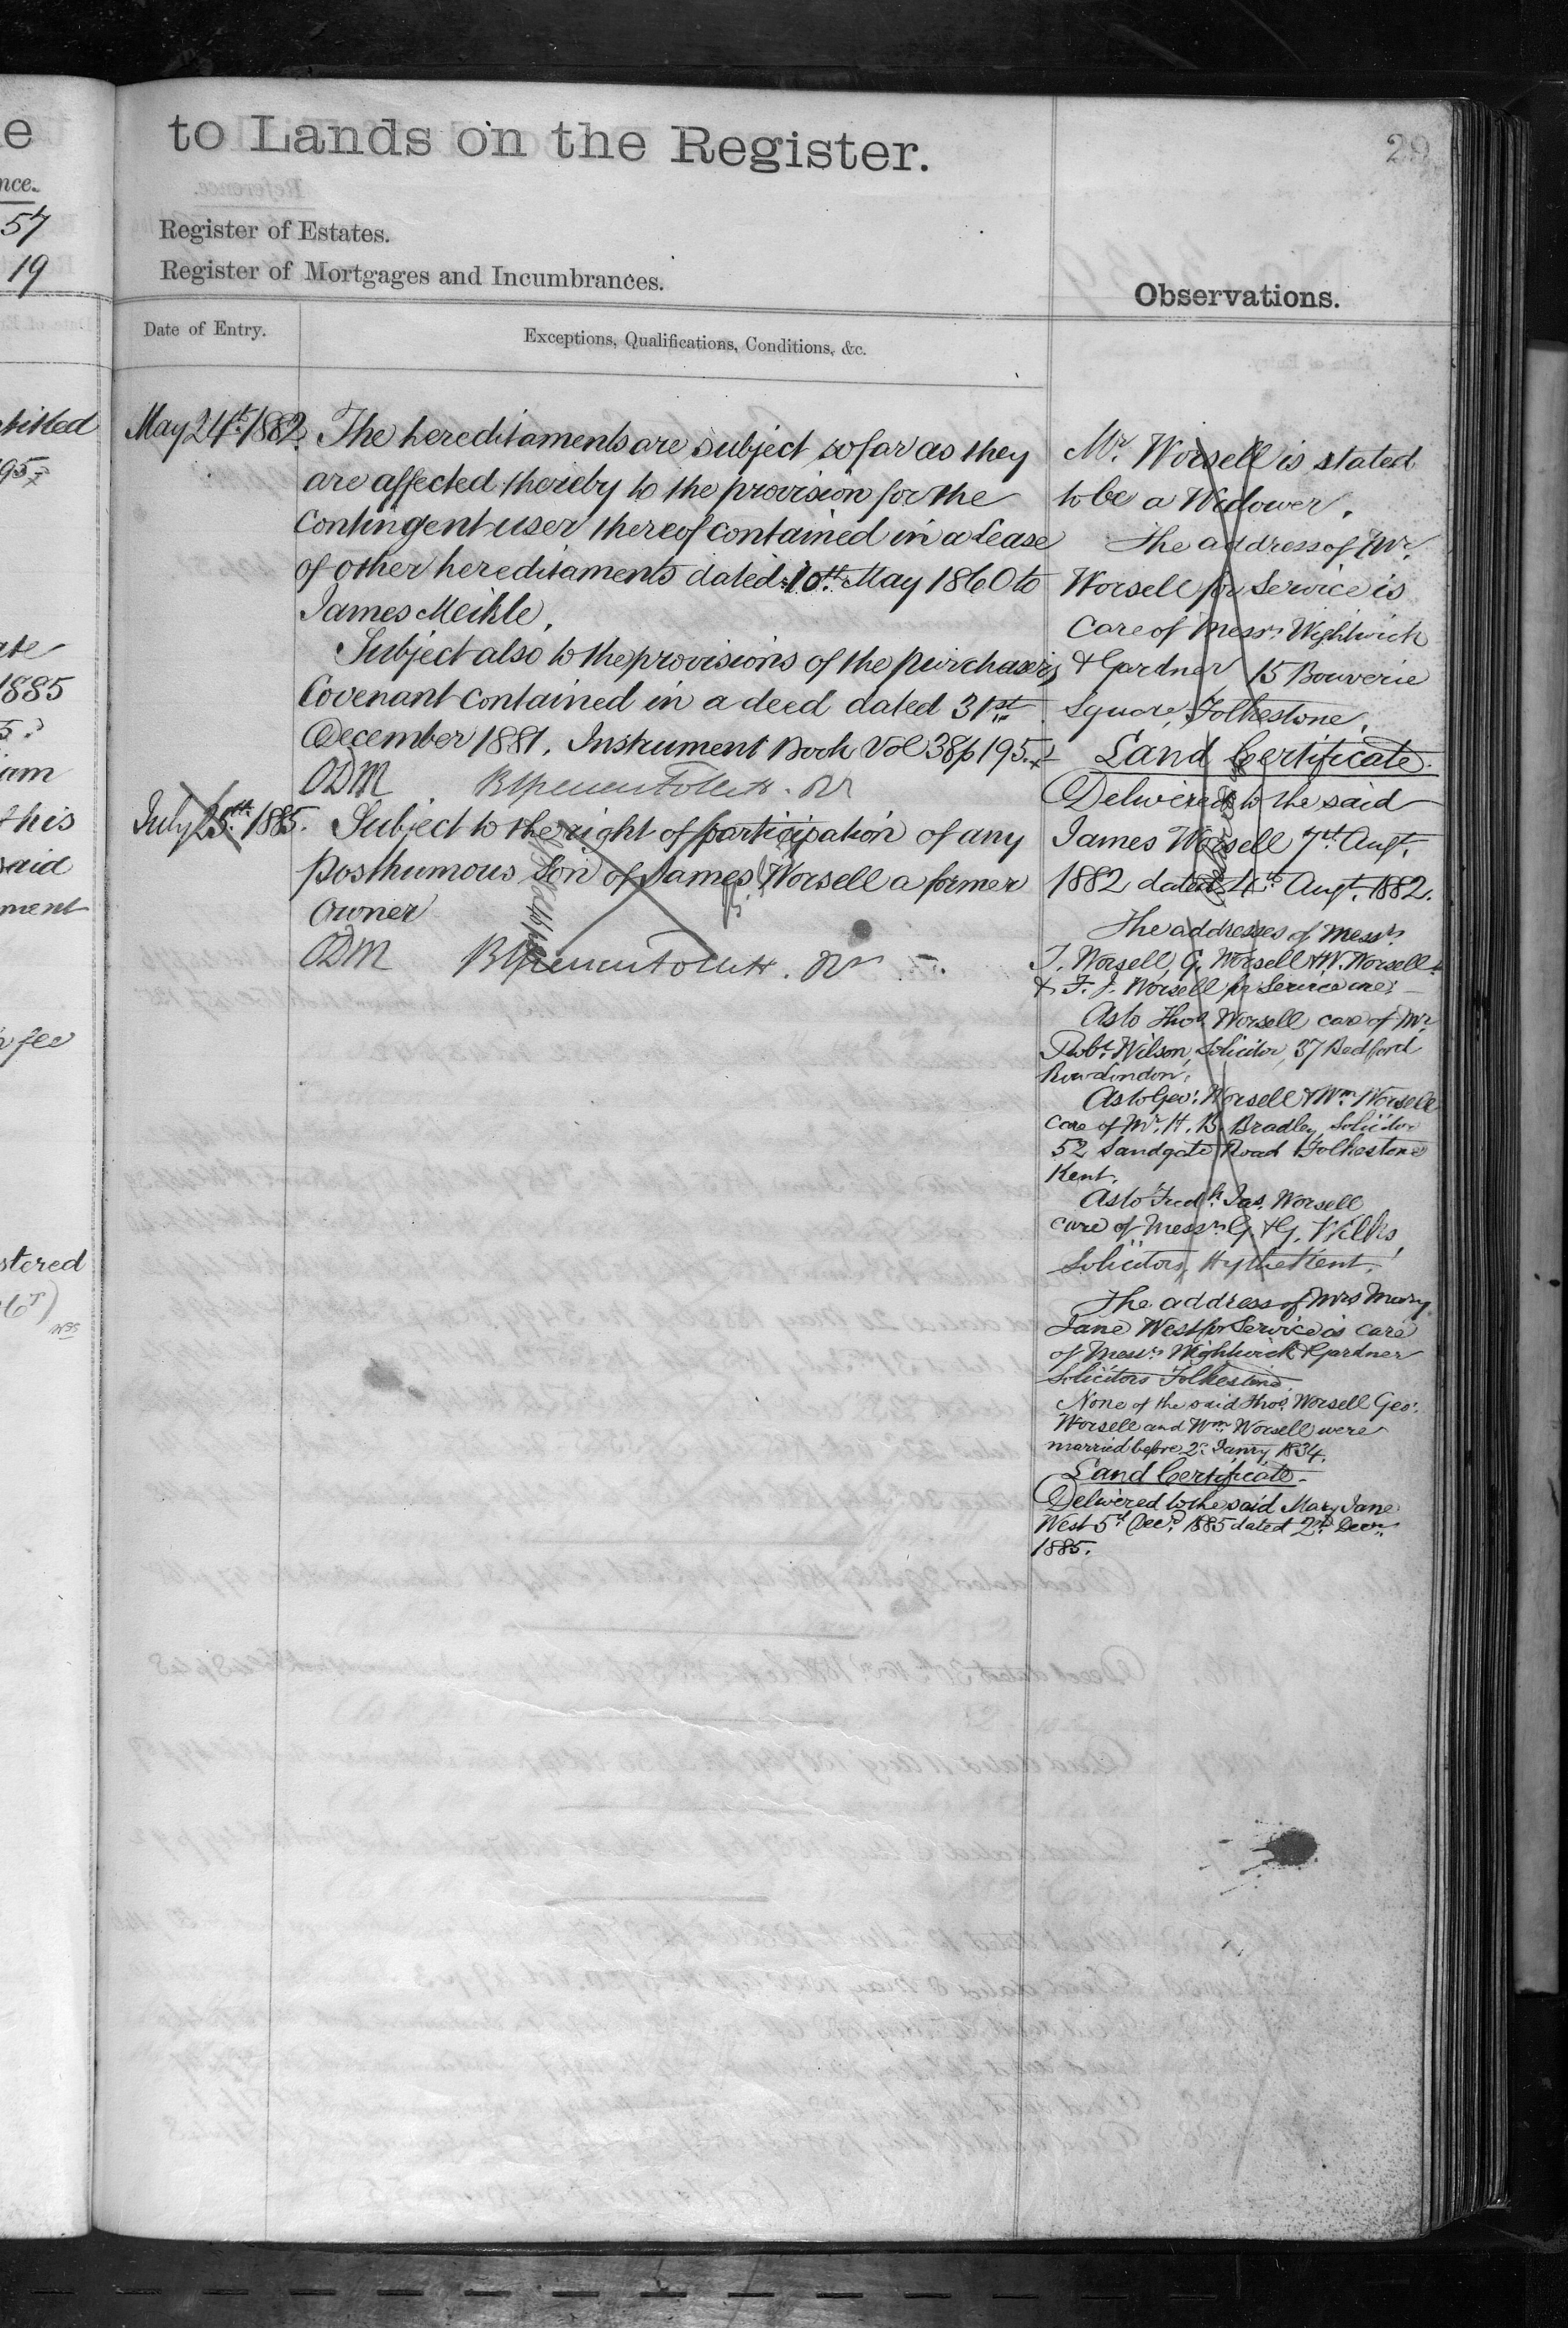 to Lands on the Register.
29
Register of Estates.
Register of Mortgages and Incumbrances.
Observations.
Date of Entry.
Exceptions, Qualifications, Conditions, &c.
e
nce.
57
19
95
ate
1885
am
this
said
ment
fee
stered
May 24th 1882.
The hereditaments are subject so far as they
are affected thereby to the provision for the
Contingent user thereof contained in a Lease
of other hereditaments dated 10th May 1860 to
James Meikle.
Subject also to the provisions of the purchasers
Covenant contained in a deed dated 31st
December 1881. Instrument Book Vol 38 p 195.
ODM
July 25th 1885.
Subject to the right of participation of any
posthumous Son of James Worsell a former
Owner
ODM
Mr. Worsell is stated
to be a Widower.
The address of Mr.
Worsell for Service is
Care of Messrs Wightwick
& Gardner 15 Bouverie
Square, Folkestone.
Land Certificate.
Delivered to the said
James Worsell 7th Augt.
1882 dated 4th Augt. 1882.
The addresses of Messrs
T. Worsell, G. Worsell & W. Worsell
& F. J. Worsell for Service are:—
As to Thos. Worsell care of Mr
Robt. Wilson, Solicitor, 37 Bedford
Row London.
As to Geo: Worsell & Wm Worsell
Care of Mr. H. B. Bradley Solicitor
52 Sandgate Road Folkestone
Kent.
As to Fredk Jas. Worsell
care of Messrs G. & G. Wilks,
Solicitors, Hythe Kent.
The address of Mrs Mary
Jane West for Service is care
of Messrs Wightwick & Gardner
Solicitors Folkestone.
None of the said Thos. Worsell Geo:
Worsell and Wm Worsell were
married before 2d Janry 1834.
Land Certificate.
Delivered to the said Mary Jane
West 5th Decr 1885 dated 2nd Decr.
1885.